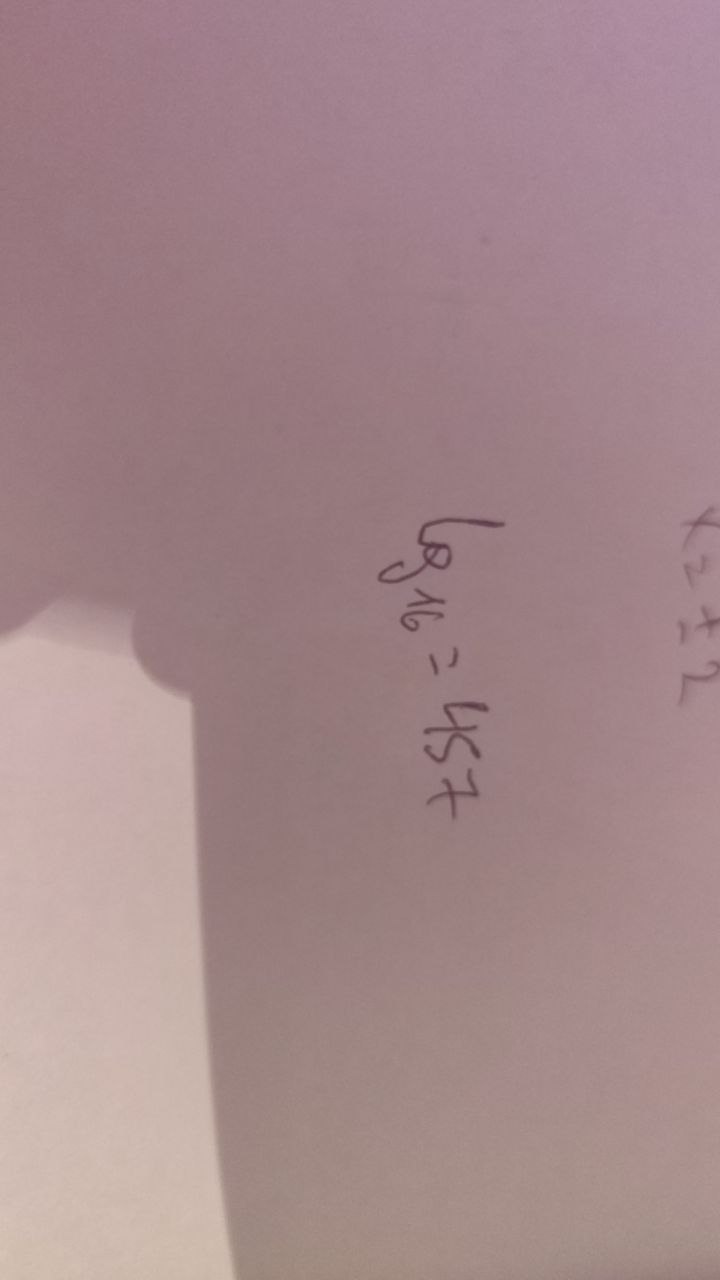 x = ± 2
log 16 = 457